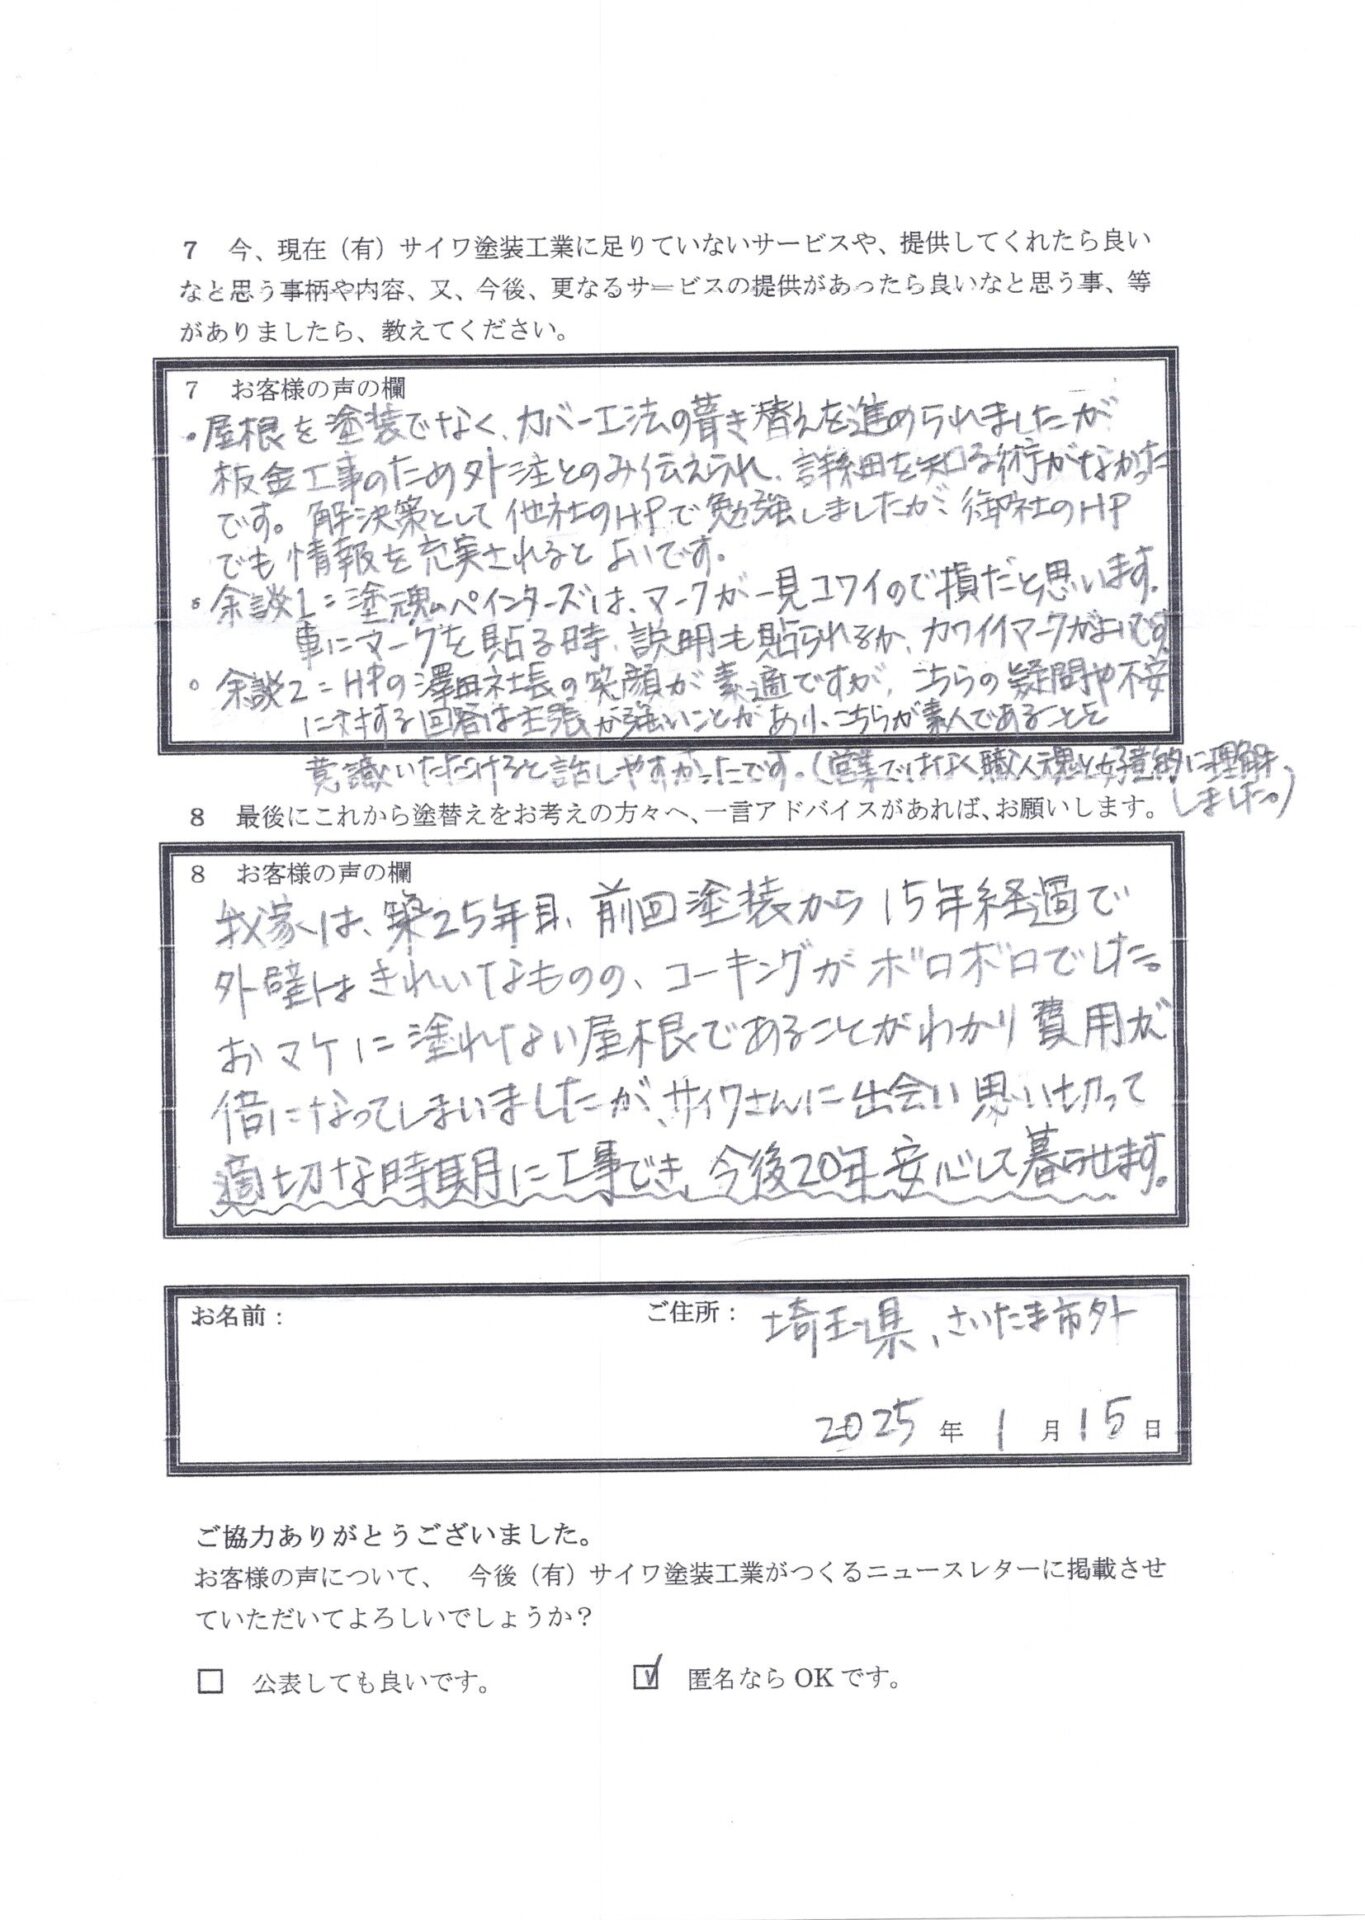 7 今、現在（有）サイワ塗装工業に足りていないサービスや、提供してくれたら良い
なと思う事柄や内容、又、今後、更なるサービスの提供があったら良いなと思う事、等
がありましたら、教えてください。
7 お客様の声の欄
・屋根を塗装でなく、カバー工法の葺き替えを進められましたが
板金工事のため外注とのみ伝えられ、詳細を知る術がなかった
です。解決策として他社のHPで勉強しましたが、御社のHP
でも情報を充実されるとよいです。
。余談1=塗魂のペインターズは、マークが一見コワイので損だと思います。
車にマークを貼る時、説明も貼られるか、カワイイマークがよいです
。余談2=HPの澤田社長の笑顔が素適ですが、こちらの疑問や不安
に対する回答は主張が強いことがあり、こちらが素人であることを
意識いただけると話しやすかったです。(営業ではなく職人魂と好意的に理解
しました。)
8 最後にこれから塗替えをお考えの方々へ、一言アドバイスがあれば、お願いします。
8 お客様の声の欄
我家は、築25年目、前回塗装から15年経過で
外壁はきれいなものの、コーキングがボロボロでした。
おマケに塗れない屋根であることがわかり費用が
倍になってしまいましたが、サイワさんに出会い思い切って
適切な時期に工事でき、今後20年安心して暮らせます。
お名前： ご住所： 埼玉県、さいたま市外
2025 年 1 月 15 日
ご協力ありがとうございました。
お客様の声について、 今後（有）サイワ塗装工業がつくるニュースレターに掲載させ
ていただいてよろしいでしょうか？
□ 公表しても良いです。 ☑ 匿名なら OK です。